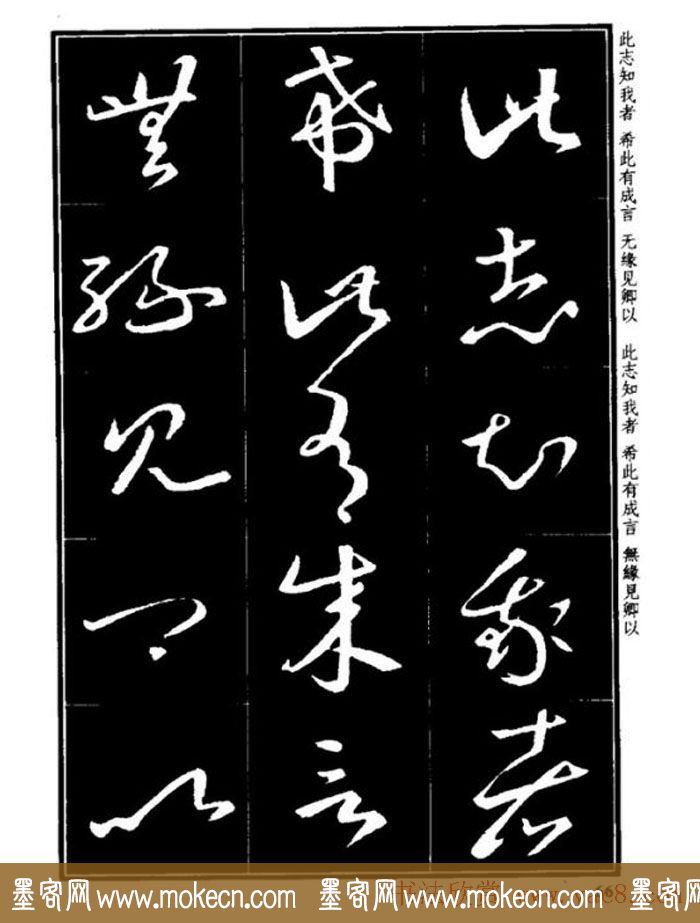 此志知我者
希此有成言
無緣見卿以
此志知我者 希此有成言 无缘见卿以 此志知我者 希此有成言 無緣見卿以
墨客网 www.mokecn.com 墨客网 www.mokecn.com 墨客网 www.mokecn.com
书法欣赏